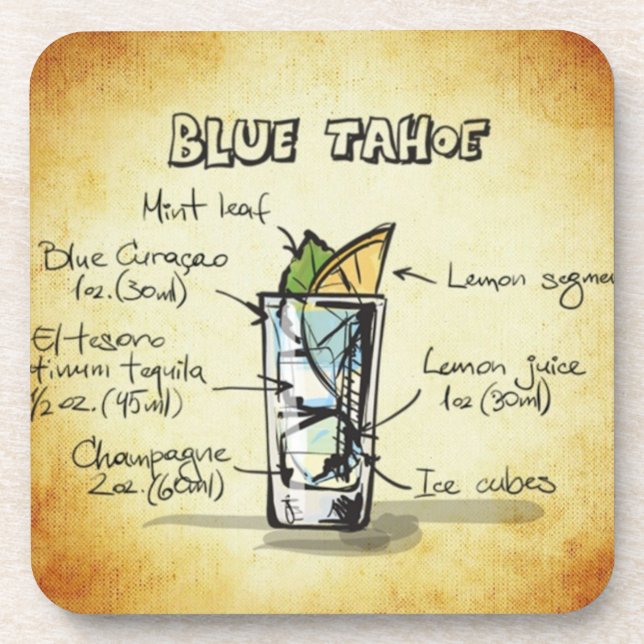 BLUE TAHOE
Mint leaf
Blue Curaçao
1oz.(30ml)
Lemon segme
El tesoro
tinum tequila
1/2 oz.(45ml)
Lemon juice
1oz(30ml)
Champagne
2oz.(60ml)
Ice cubes